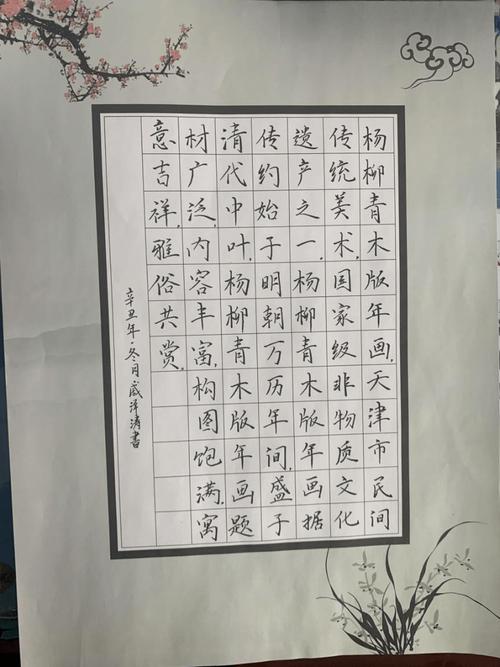 杨柳青木版年画,天津市民间
传统美术,国家级非物质文化
遗产之一,杨柳青木版年画据
传约始于明朝万历年间,盛于
清代中叶,杨柳青木版年画题
材广泛,内容丰富,构图饱满,寓
意吉祥,雅俗共赏.
辛丑年·冬月戚洋涛书